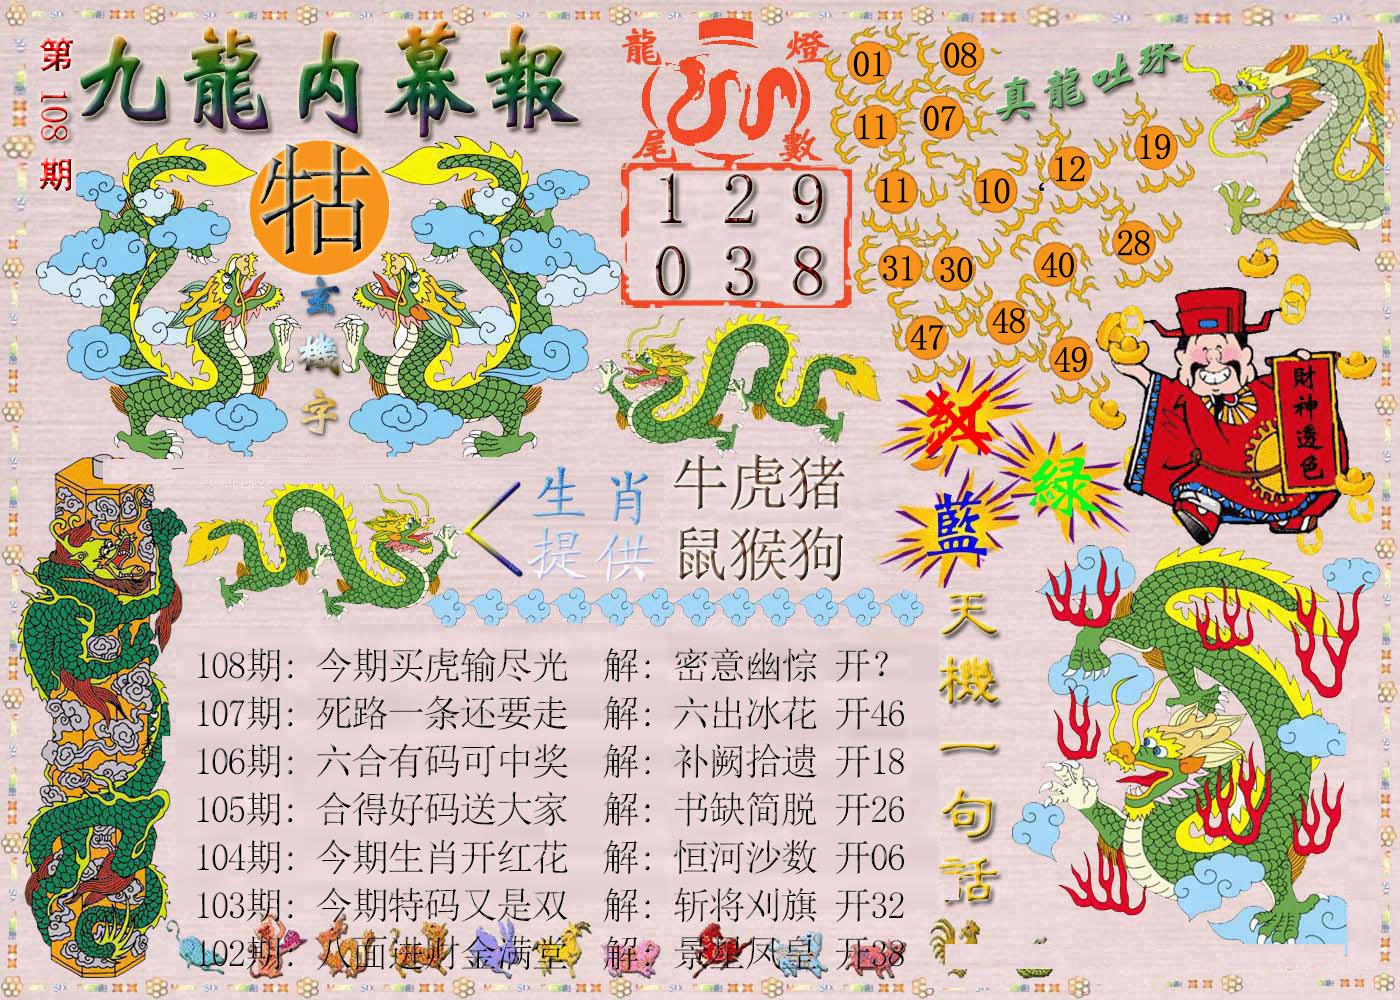 第108期
九龍内幕報
牯
玄機字
龍燈
尾數
1 2 9
0 3 8
真龍吐珠
01 08
11 07
19
12
11 10
28
31 30 40
47 48
49
財神透色
紅
綠
藍
生肖
提供
牛虎猪
鼠猴狗
天機一句話
108期：今期买虎输尽光 解：密意幽悰 开？
107期：死路一条还要走 解：六出冰花 开46
106期：六合有码可中奖 解：补阙拾遗 开18
105期：合得好码送大家 解：书缺简脱 开26
104期：今期生肖开红花 解：恒河沙数 开06
103期：今期特码又是双 解：斩将刈旗 开32
102期：八面进财金满堂 解：景星凤皇 开38